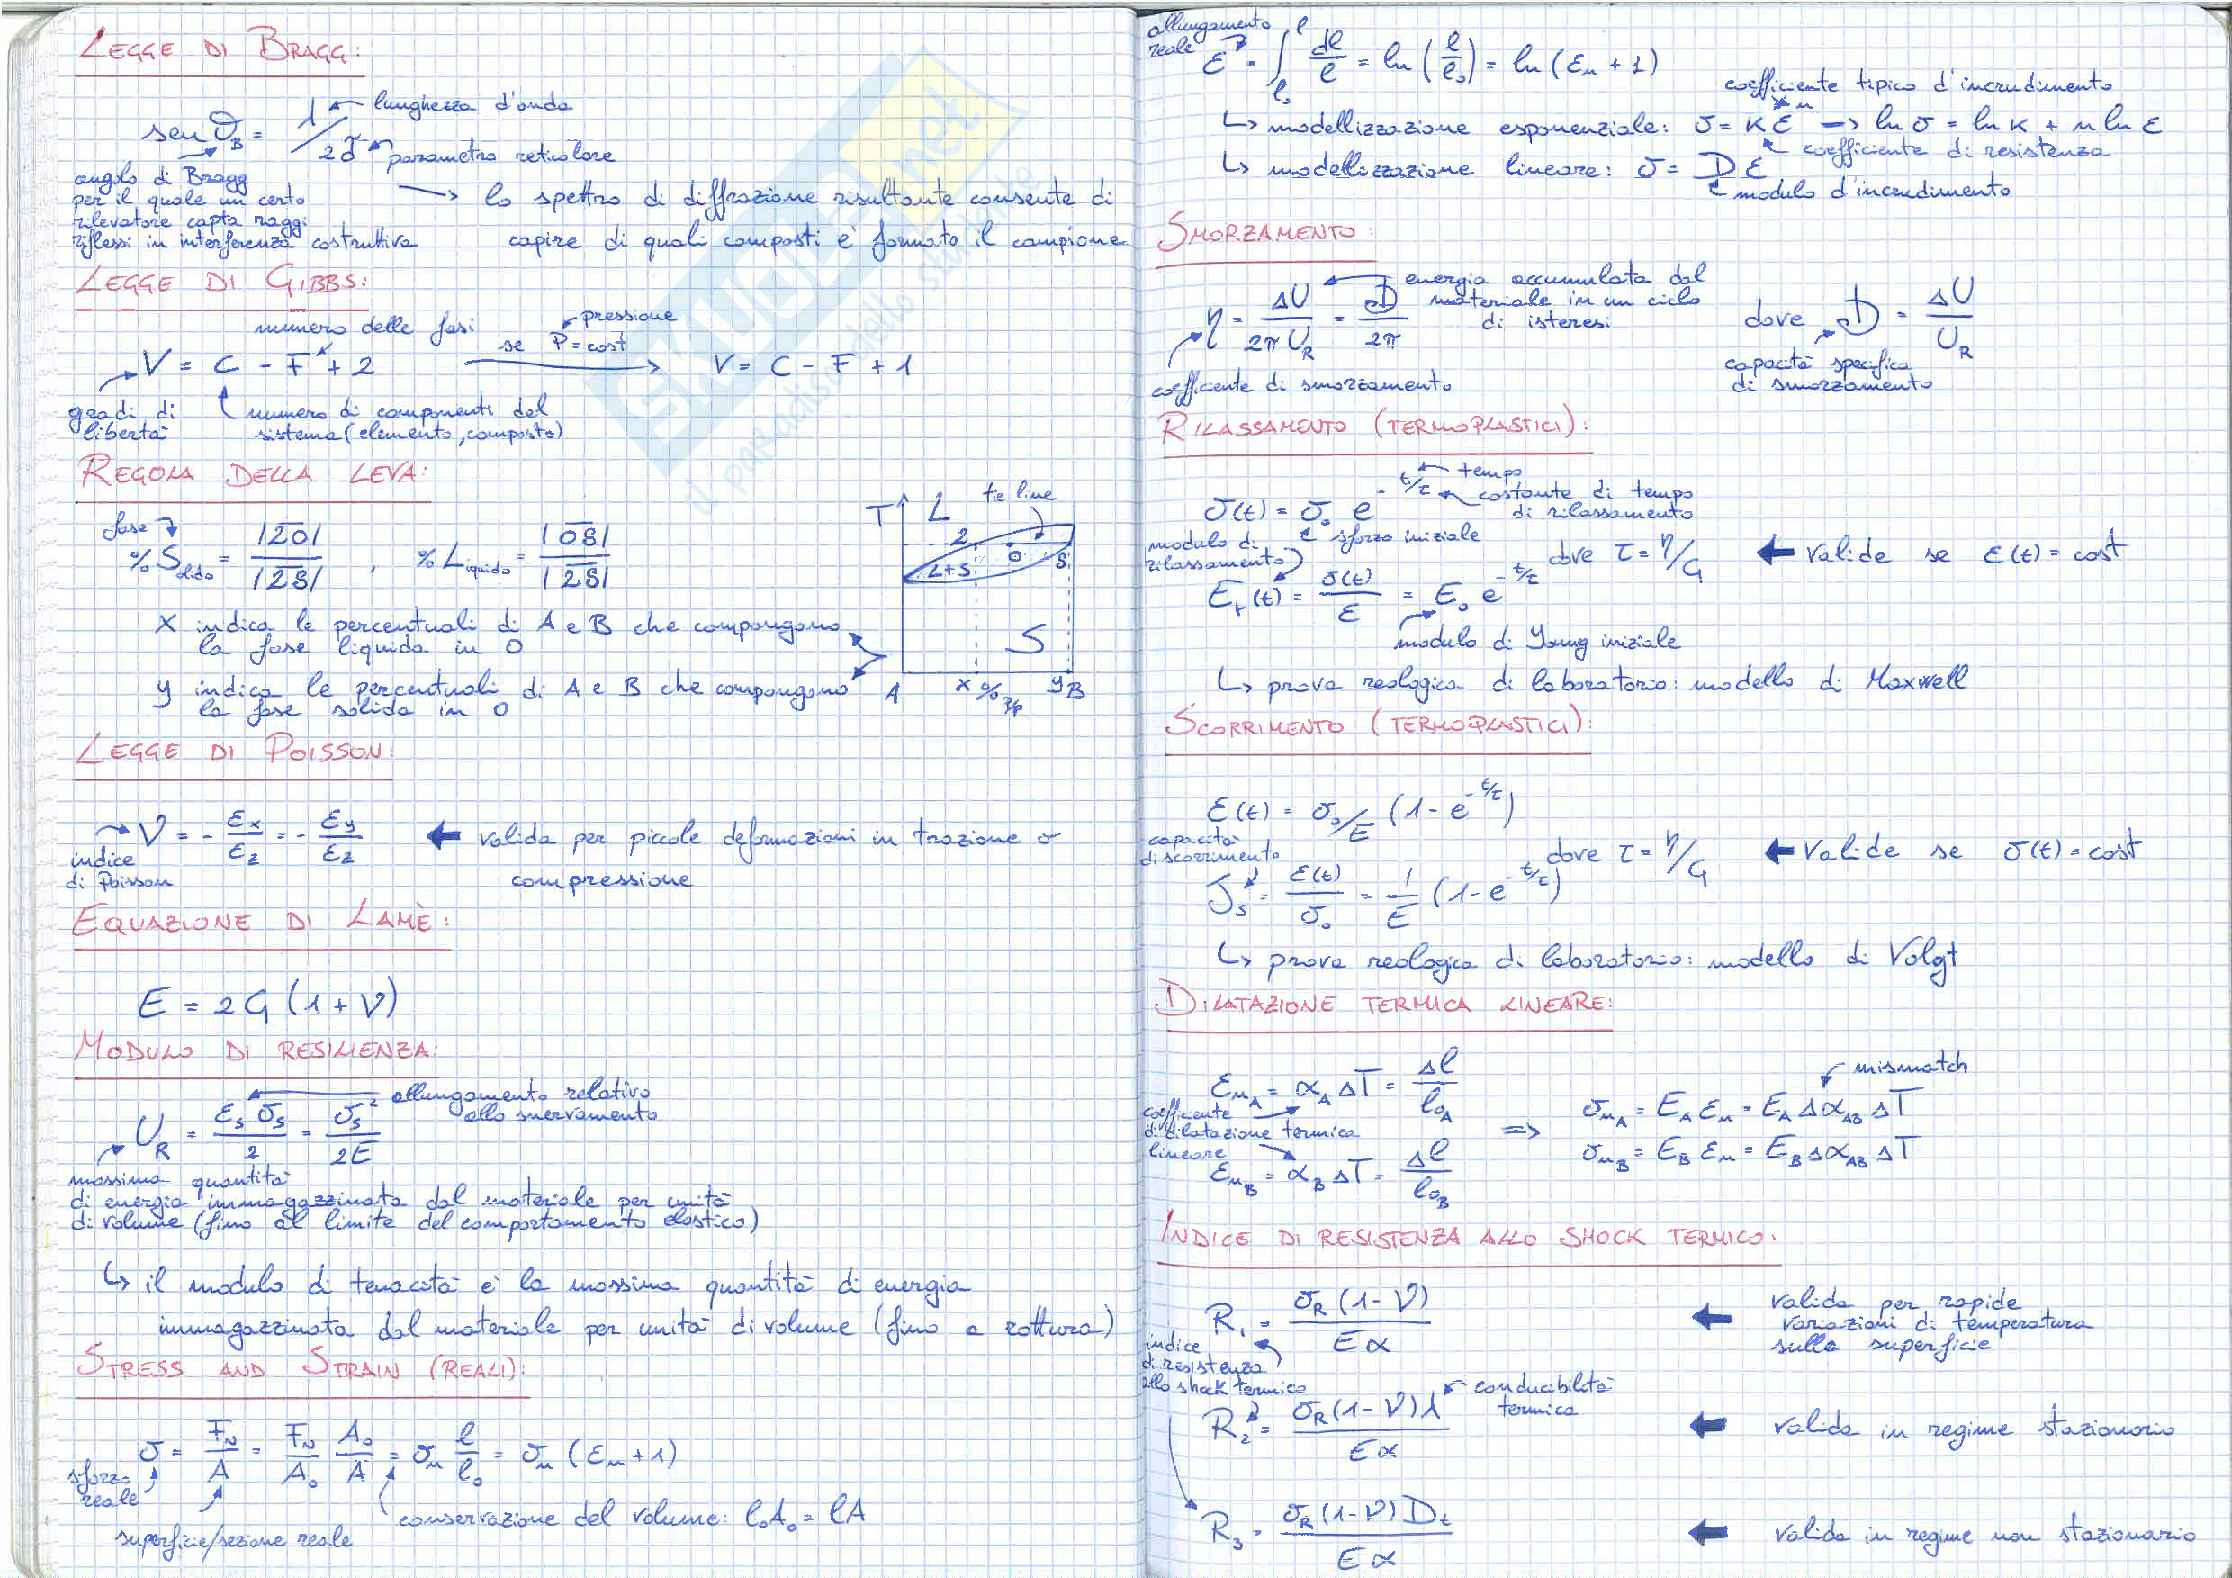 LEGGE DI BRAGG:
lunghezza d'onda
sen θ_B = λ / 2d
parametro reticolare
angolo di Bragg
per il quale un certo
rilevatore capta raggi
riflessi in interferenza costruttiva
→ lo spettro di diffrazione risultante consente di
capire di quali composti è formato il campione
LEGGE DI GIBBS:
numero delle fasi
pressione
V = C - F + 2 se P = cost → V = C - F + 1
gradi di libertà
numero di componenti del
sistema (elemento, composto)
REGOLA DELLA LEVA:
fase
%Solido = |2O| / |2S| , %Liquido = |OS| / |2S|
X indica le percentuali di A e B che compongono
la fase liquida in O
Y indica le percentuali di A e B che compongono
la fase solida in O
T L tie line
2 O S
L+S
S
A X % Y B
LEGGE DI POISSON:
ν = - εx/εz = - εy/εz ← valida per piccole deformazioni in trazione o
compressione
indice
di Poisson
EQUAZIONE DI LAMÈ:
E = 2G (1 + ν)
MODULO DI RESILIENZA:
allungamento relativo
allo snervamento
U_R = ε_s σ_s / 2 = σ_s² / 2E
massima quantità
di energia immagazzinata dal materiale per unità
di volume (fino al limite del comportamento elastico)
↳ il modulo di tenacità è la massima quantità di energia
immagazzinata dal materiale per unità di volume (fino a rottura)
STRESS AND STRAIN (REALI):
σ = F_N/A = F_N/A₀ A₀/A = σ_n l/l₀ = σ_n (ε_n + 1)
sforzo
reale
conservazione del volume: l₀A₀ = lA
superficie/sezione reale
allungamento
reale
ε = ∫_{l₀}^{l} dl/l = ln (l/l₀) = ln (ε_n + 1)
coefficiente tipico d'incrudimento
↳ modellizzazione esponenziale: σ = K ε^n → ln σ = ln K + n ln ε
coefficiente di resistenza
↳ modellizzazione lineare: σ = D ε
modulo d'incrudimento
SMORZAMENTO:
energia accumulata dal
materiale in un ciclo
di isteresi
η = ΔU / 2π U_R = D / 2π dove D = ΔU / U_R
coefficiente di smorzamento
capacità specifica
di smorzamento
RILASSAMENTO (TERMOPLASTICI):
tempo
costante di tempo
di rilassamento
σ(t) = σ₀ e^{-t/τ}
sforzo iniziale
modulo di
rilassamento
dove τ = η/G ← valide se ε(t) = cost
E_r(t) = σ(t)/ε = E₀ e^{-t/τ}
modulo di Young iniziale
↳ prova reologica di laboratorio: modello di Maxwell
SCORRIMENTO (TERMOPLASTICI):
ε(t) = σ₀/E (1 - e^{-t/τ})
capacità
di scorrimento
dove τ = η/G ← valide se σ(t) = cost
J_s = ε(t)/σ₀ = 1/E (1 - e^{-t/τ})
↳ prova reologica di laboratorio: modello di Volgt
DILATAZIONE TERMICA LINEARE:
mismatch
ε_{nA} = α_A ΔT = Δl / l₀A
coefficiente
di dilatazione termica
lineare
ε_{nB} = α_B ΔT = Δl / l₀B
⇒ σ_{nA} = E_A ε_n = E_A Δα_AB ΔT
σ_{nB} = E_B ε_n = E_B Δα_AB ΔT
INDICE DI RESISTENZA ALLO SHOCK TERMICO:
R₁ = σ_R (1 - ν) / E α ← valida per rapide
variazioni di temperatura
sulla superficie
indice
di resistenza
allo shock termico
conducibilità
termica
R₂ = σ_R (1 - ν) λ / E α ← valida in regime stazionario
R₃ = σ_R (1 - ν) D_t / E α ← valida in regime non stazionario